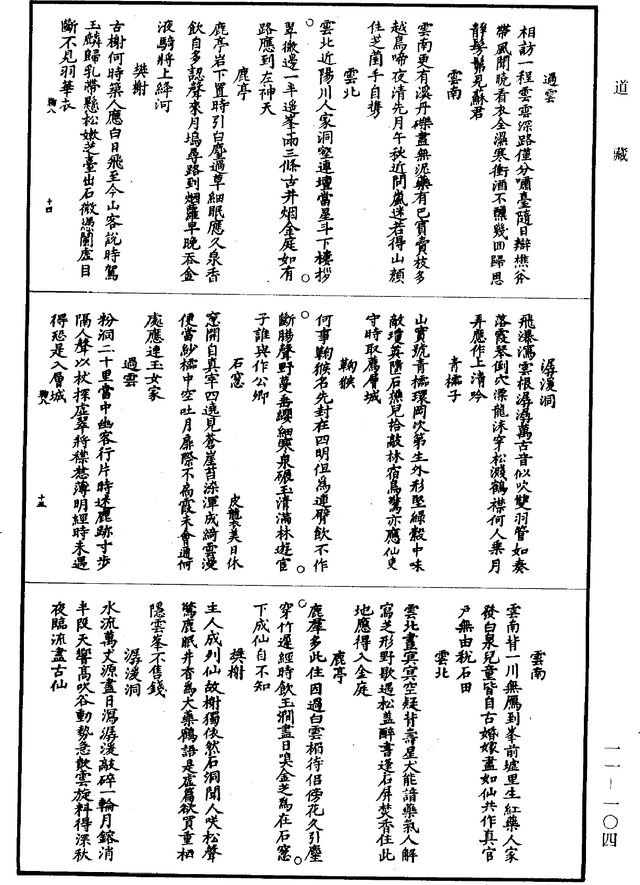 道藏
過雲
相訪一程雲雲深路僅分嘯臺隨日辯樵斧
帶風聞晚看衣全濕寒衝酒不醺幾回歸思
靜髣髴見蘇君
雲南
雲南更有溪丹礫盡無泥藥有巴賨賣枝多
越鳥啼夜清先月午秋近少嵐迷若得山顏
住芝𦵏手自攜
雲北
雲北近陽川人家洞壑連壇當星斗下樓拶
翠微邊一半遥峯雨三條古井烟金庭如有
路應到左神天
鹿亭
鹿亭岩下置時引白麑過草細眠應久泉香
飲自多認聲來月塢尋路到烟蘿早晚吞金
液騎將上絳河
樊榭
古榭何時築人應白日飛至今山客說時駕
玉麟歸乳帶懸松嫩芝臺出石微憑闌虛目
斷不見羽華衣
鞠八
十四
潺湲洞
飛瀑瀉雲根潺潺萬古音似吹雙羽管如奏
落霞琴倒穴漂龍沫穿松濺鶴襟何人乘月
弄應作上清吟
青櫺子
山實號青櫺環岡次第生外形堅綠殼中味
敵瓊英墮石樵兒拾敲林宿鳥驚亦應仙吏
守時取薦層城
鞠猴
何事鞠猴名先封在四明但爲連臂飲不作
斷腸聲野蔓垂纓細寒泉碾玉清滿林遊宦
子誰與作公卿
石窻
皮襲美日休
窻開自真宰四達見蒼崖苔染渾成綺雲漫
便當紗櫺中空吐月扉際不扃霞未會通何
處應連玉女家
過雲
粉洞二十里當中幽客行片時迷鹿跡寸步
隔人聲以杖探虛翠將襟惹薄明經時未過
得恐是入層城
鞠八
十五
雲南
雲南背一川無鴈到峯前墟里生紅藥人家
發白泉兒童皆自古婚嫁盡如仙共作真官
戶無由稅石田
雲北
雲北晝冥冥空疑背壽星犬能諳藥氣人解
寫芝形野歇遇松蓋醉書逢石屏焚香住此
地應得入金庭
鹿亭
鹿羣多此住因遇白雲楣待侣傍花久引麛
穿竹遲經時飲玉澗盡日嗅金芝爲在石窻
下成仙自不知
樊榭
主人成列仙故榭獨依然石洞聞人笑松聲
驚鹿眠井香爲大藥鶴語是虛篇欲買重棲
隱雲峯不售錢
潺湲洞
水流萬丈源盡日瀉潺湲敲碎一輪月鎔消
半段天響高吹谷動勢急歕雲旋料得深秋
夜臨流盡古仙
一一-一〇四